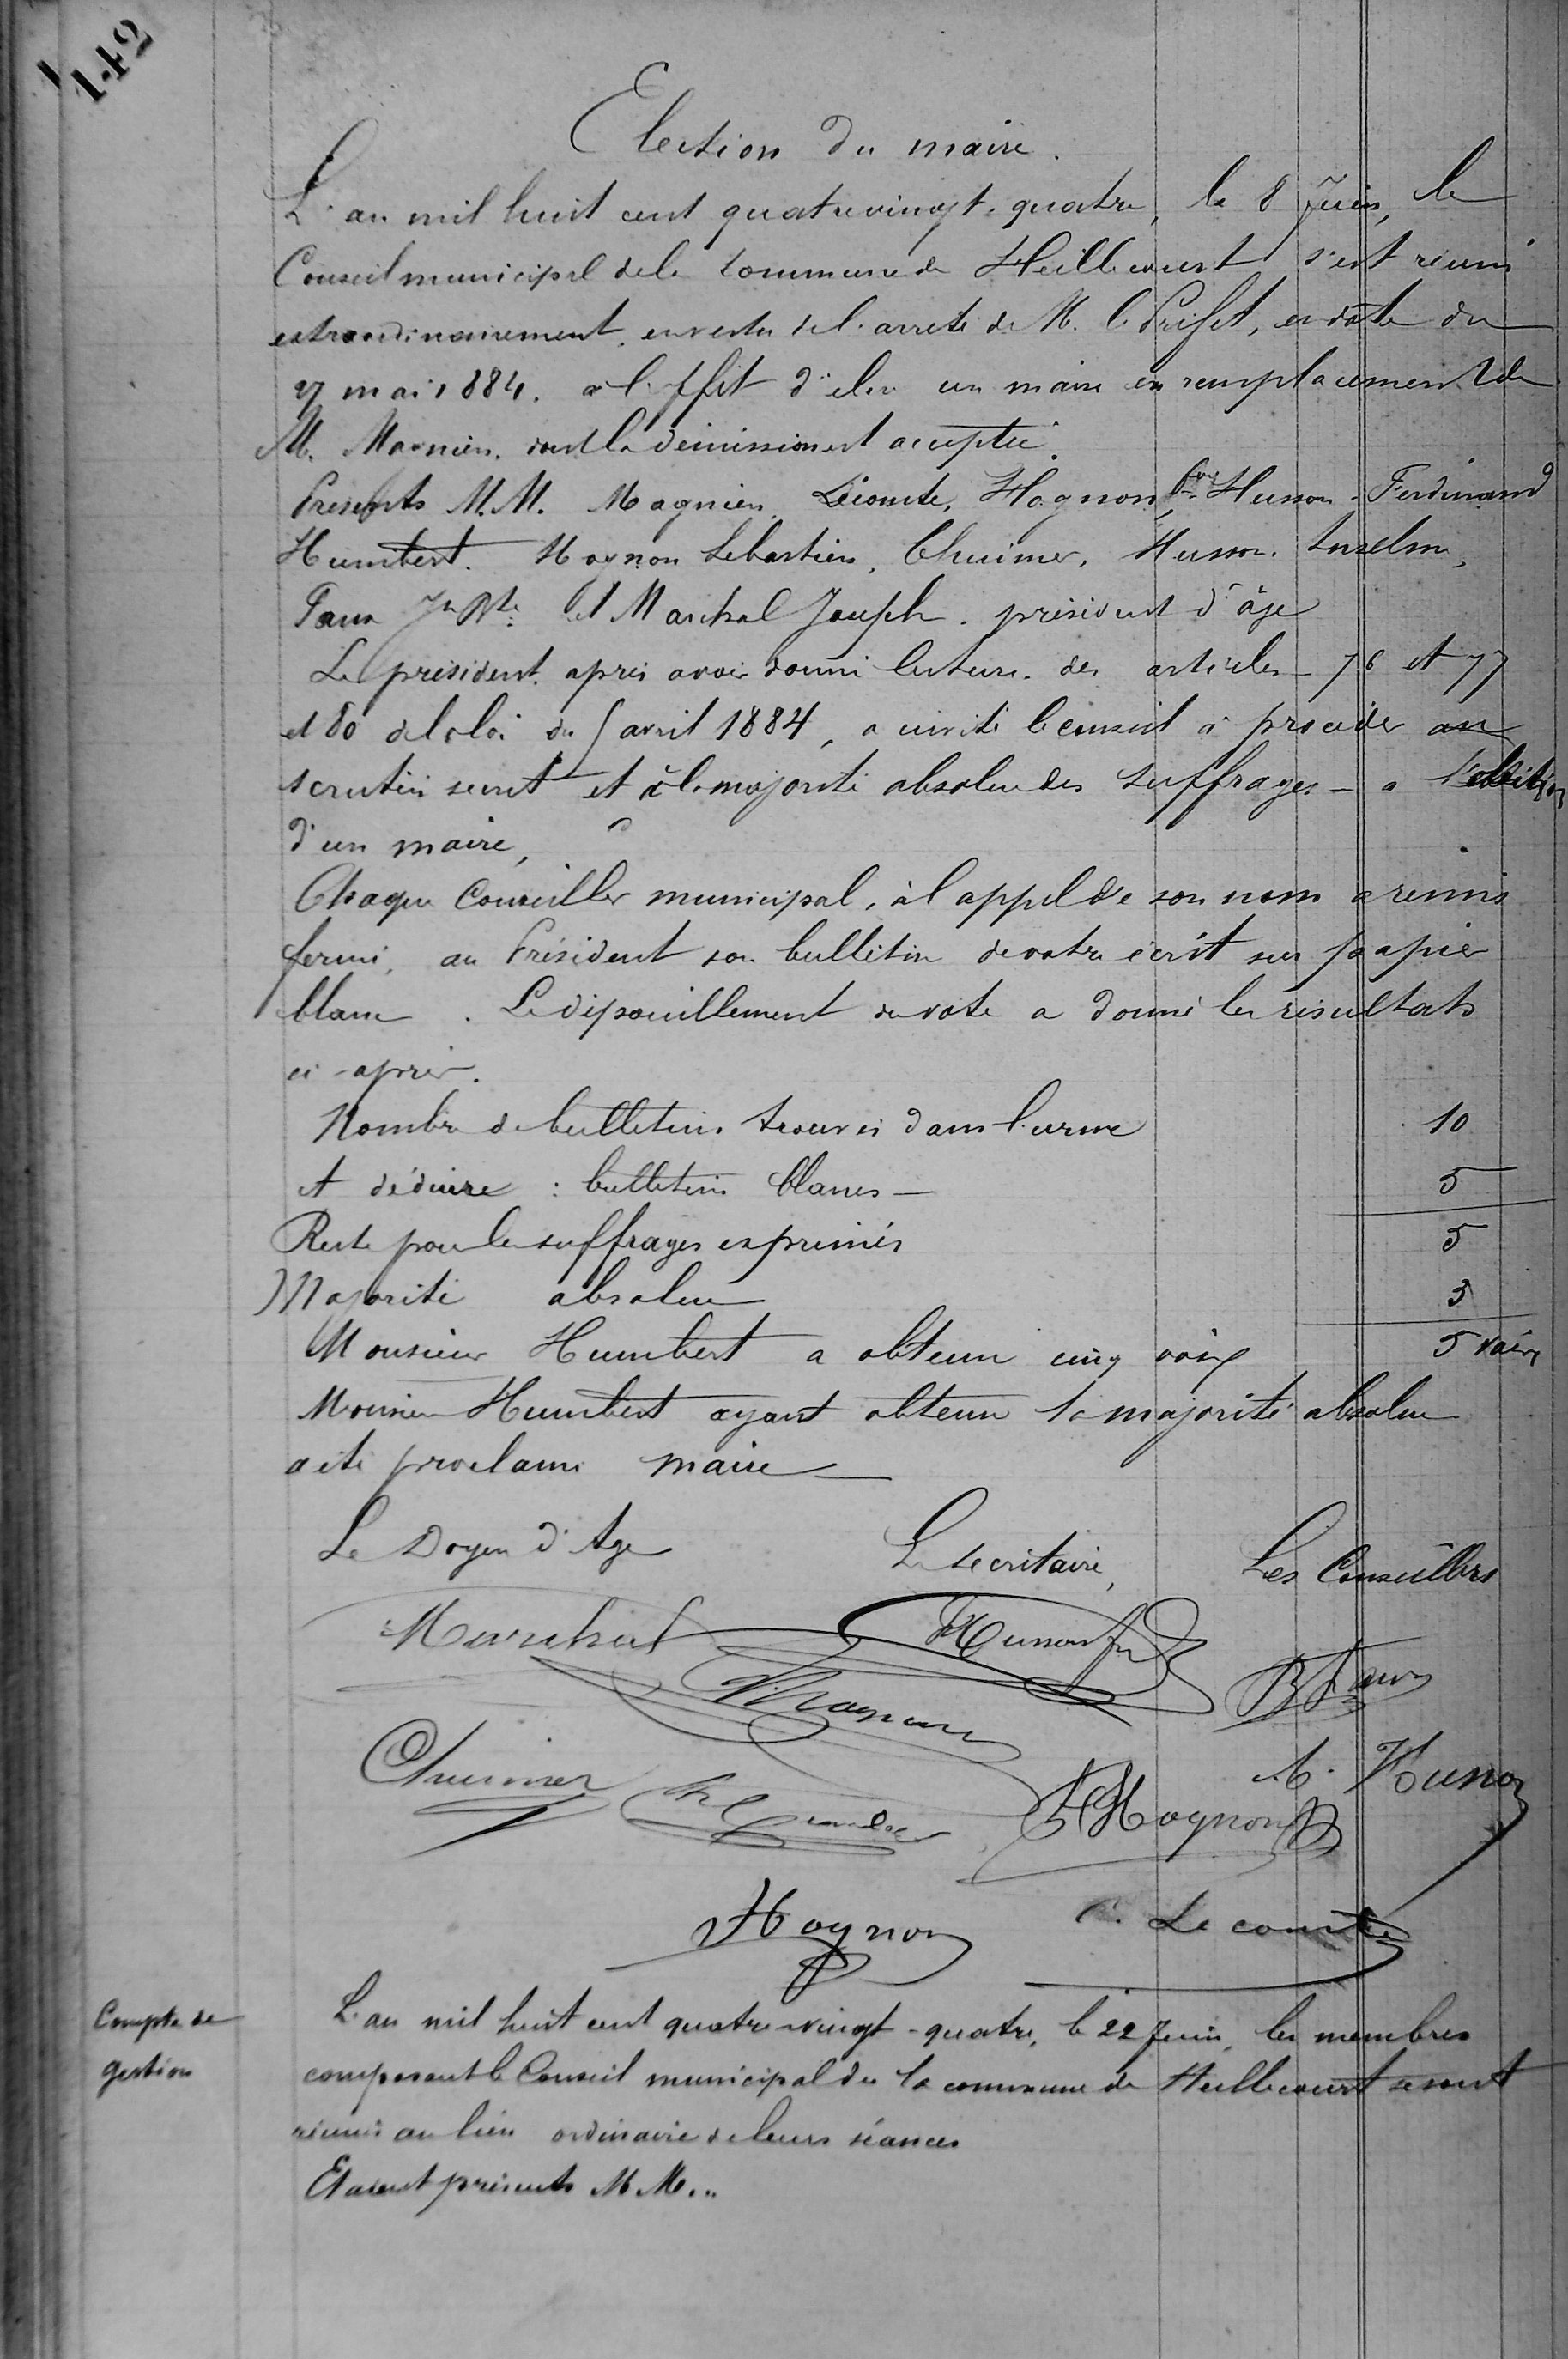 142
Election du maire.
L'an mil huit cent quatrevingt-quatre, le 8 Juin, le
Conseil municipal de la commune de Heillecourt s'est réuni
extraordinairement, en vertu de l'arrêté de M. le Préfet, en date du
27 mai 1884. à l'effet d'élir un maire en remplacement de
M. Magnien. dont la démission est acceptée.
Présents M.M. Magnien, Lecomte, Hognon Husson-Ferdinand
Humbert. Hognon Sebastien, Thuimer, Husson. Anselm,
Faux Jn Bte et Marchal Joseph. président d'âge
Le président après avoir donné lecture des articles 76 et 77
et 80 de la loi du 5 avril 1884, a invité le conseil à procéder au
scrutin secret et à la majorité absolue des suffrages - a l'election
d'un maire,
Chaque Conseiller municipal, à l'appel de son nom a remis
fermé, au Président son bulletin de votre écrit sur papier
blanc. Le dépouillement du vote a donné les résultats
ci-après.
Nombre de bulletins trouvés dans l'urne 10
A déduire : bulletins blancs - 5
Reste pour les suffrages exprimés 5
Majorité absolue 3
Monsieur Humbert a obtenu cinq voix 5 voix
Monsieur Humbert ayant obtenu la majorité absolue
a été proclamé maire
Le Doyen d'Age Le Secrétaire, Les Conseillers
Marchal Husson fd B Faux
Magnien
Thuimer A. Husson
Hognon
Hognon C. Lecomte
Compte de
gestion
L'an mil huit cent quatre-vingt-quatre, le 22 Juin, les membres
composant le Conseil municipal de la commune de Heillecourt se sont
réunis au lieu ordinaire de leurs séances
Etaient présents M M...